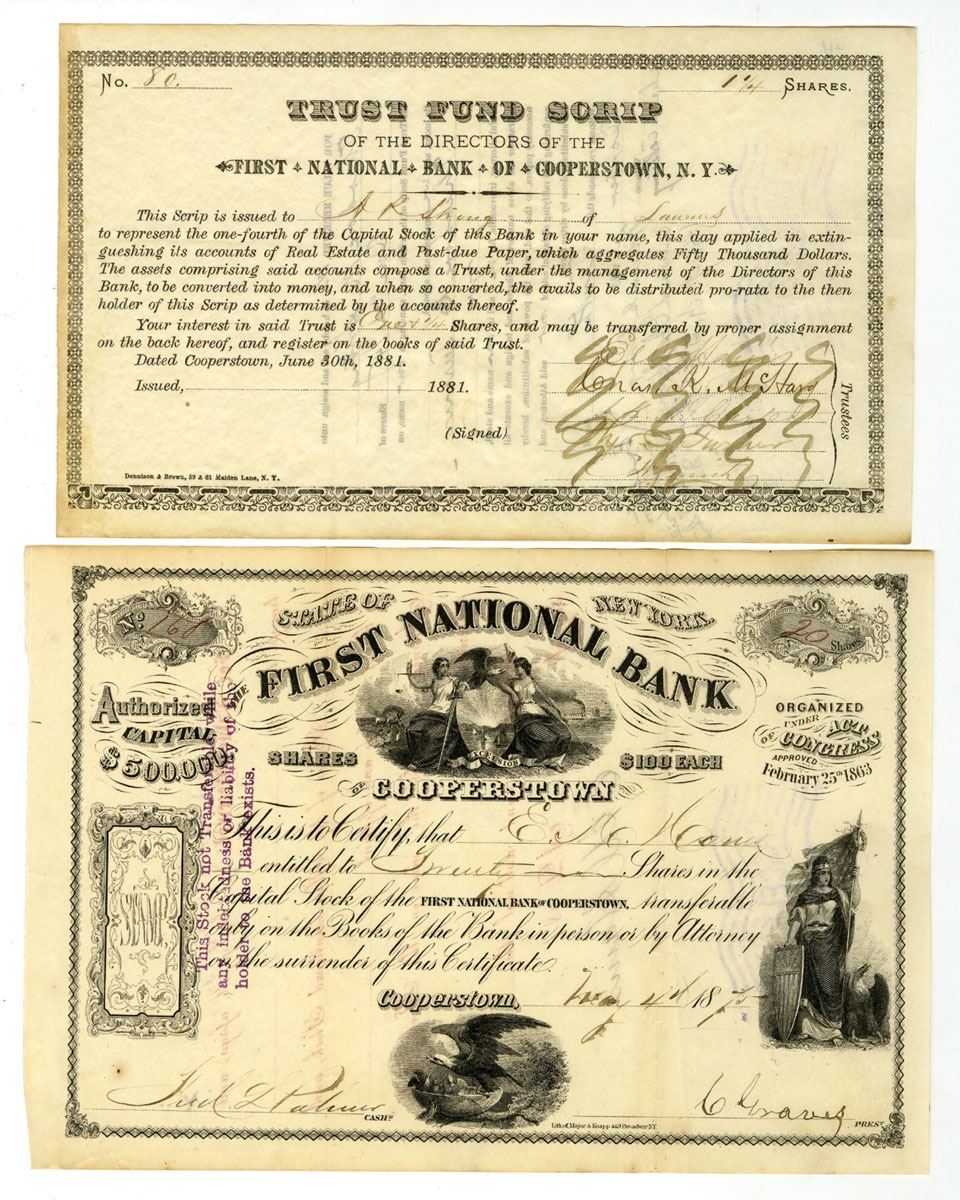 No. 80. 1 1/4 SHARES.
TRUST FUND SCRIP
OF THE DIRECTORS OF THE
FIRST NATIONAL BANK OF COOPERSTOWN, N. Y.
This Scrip is issued to A R Strong of Laurens
to represent the one-fourth of the Capital Stock of this Bank in your name, this day applied in extin-
gueshing its accounts of Real Estate and Past-due Paper, which aggregates Fifty Thousand Dollars.
The assets comprising said accounts compose a Trust, under the management of the Directors of this
Bank, to be converted into money, and when so converted, the avails to be distributed pro-rata to the then
holder of this Scrip as determined by the accounts thereof.
Your interest in said Trust is One & 1/4 Shares, and may be transferred by proper assignment
on the back hereof, and register on the books of said Trust.
Dated Cooperstown, June 30th, 1881.
Issued, 1881.
(Signed)
Chas. K. McHarg
Trustees
Dennison & Brown, 59 & 61 Maiden Lane, N. Y.
STATE OF NEW YORK.
No 160
20 Shares
THE FIRST NATIONAL BANK
Authorized
CAPITAL
$500.000
ORGANIZED
UNDER
OF ACT
CONGRESS
APPROVED
February 25th 1863
EXCELSIOR
SHARES $100 EACH
OF COOPERSTOWN
This is to Certify, that E. M.
entitled to Twenty Shares in the
Capital Stock of the FIRST NATIONAL BANK OF COOPERSTOWN, transferable
only on the Books of the Bank in person or by Attorney
on the surrender of this Certificate.
Cooperstown, May 4th 1875
This Stock not Transferable while
any indebtedness or liability of the
holder to the Bank exists.
Fred L Palmer CASHR
C Graves PREST
Lith. of Major & Knapp 449 Broadway N.Y.